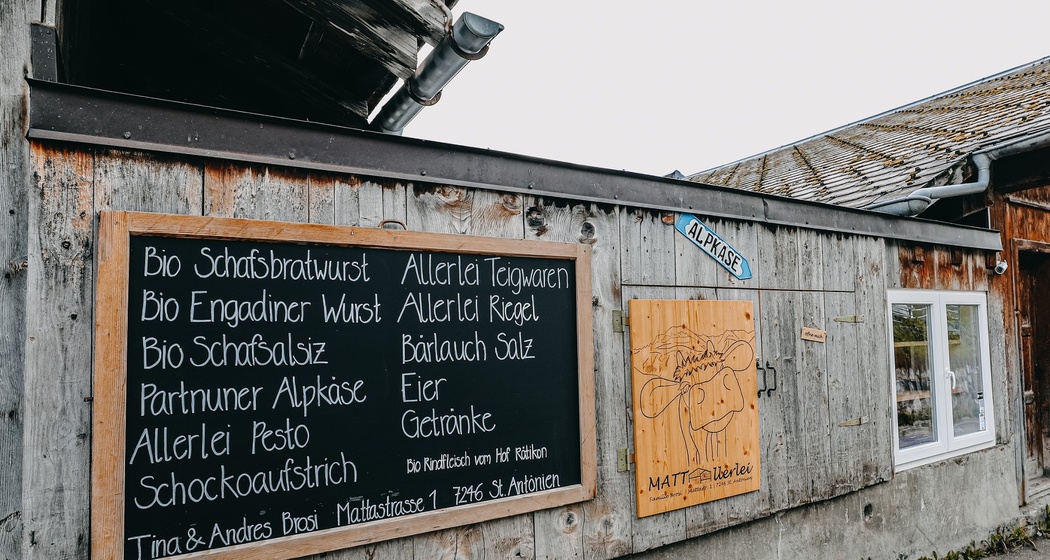 Bio Schafsbratwurst
Bio Engadiner Wurst
Bio Schafsalsiz
Partnuner Alpkäse
Allerlei Pesto
Schockoaufstrich
Allerlei Teigwaren
Allerlei Riegel
Bärlauch Salz
Eier
Getränke
Bio Rindfleisch vom Hof Rätikon
Tina & Andres Brosi Mattastrasse 1 7246 St. Antönien
ALPKÄSE
MATTAllerlei
Familie Brosi 7246 St. Antönien